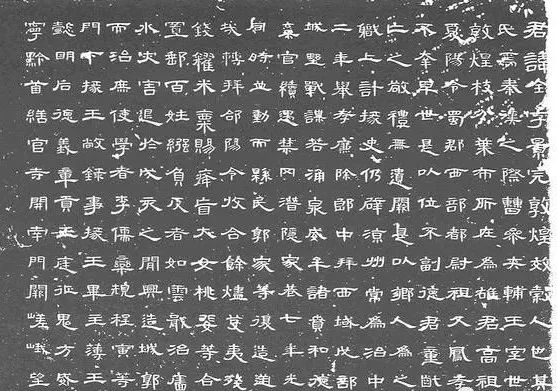 君諱全字景完敦煌效穀人也其
氏焉秦漢之際曹參夾輔王室世
敦煌枝分葉布所在為雄君高祖
夏陽令蜀郡西部都尉祖父鳳孝
不幸早世是以位不副德君童齔
亡之敬禮無遺闕是以鄉人為之
職上計掾史仍辟涼州常為治中
二年舉孝廉除郎中拜西域戊部
城野戰謀若涌泉威牟諸賁和德
棄官續遇禁冈潛隱家巷七年光
同時並動而縣民郭家等復造逆
哉轉拜郃陽令收合餘燼芟夷殘
錢糴米粟賜癃盲大女桃婓等合
置郵百姓繦負反者如雲戢治廧
水災害退於戊亥之間興造城郭
而治庶使學者李儒欒規程寅等
門下掾王敞錄事掾王畢主薄王
懿明后德義章貢王庭征鬼方威
寧黔首繕官寺開南門闕嵯峨望